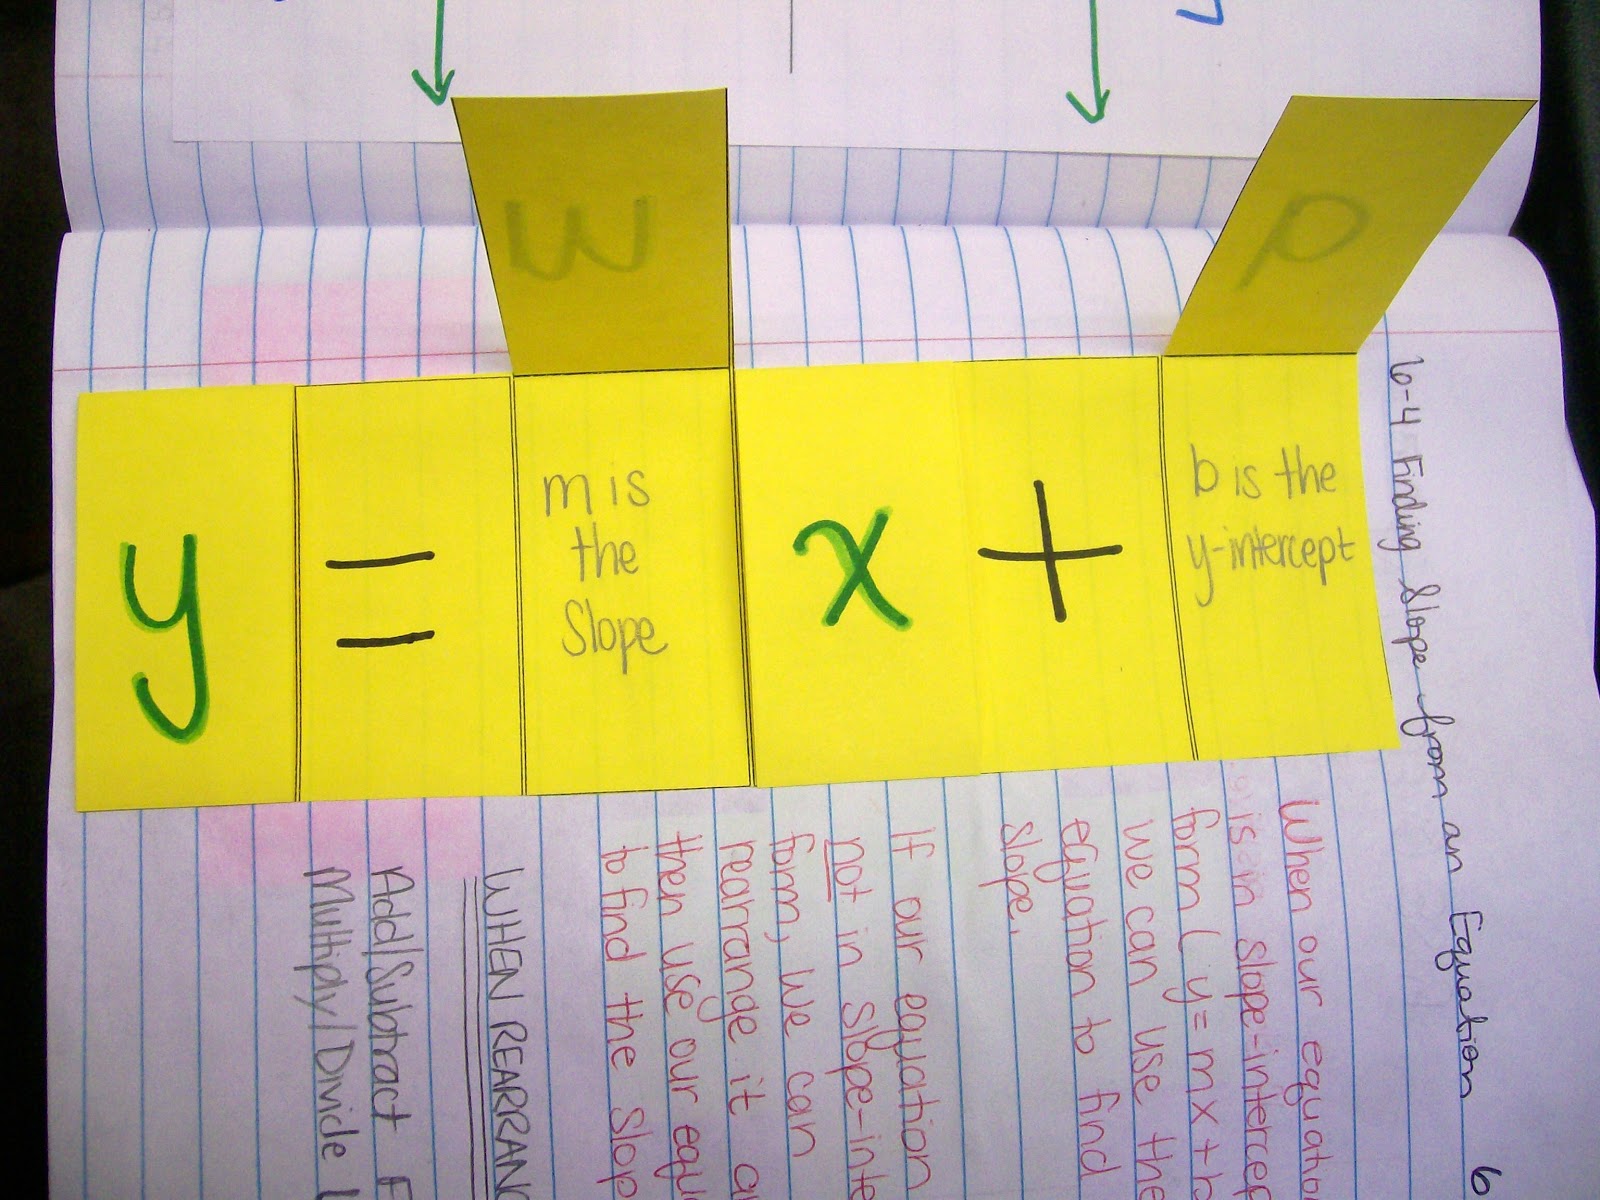 y = m is the Slope x + b is the y-intercept
m
b
6-4 Finding Slope from an Equation 6
When our equation
is in slope-intercep
form (y = mx + b
we can use the
equation to find
slope.
If our equation
not in slope-inte
form, we can
rearrange it a
then use our equ
to find the slop
WHEN REARRANG
Add/Subtract F
Multiply/Divide L